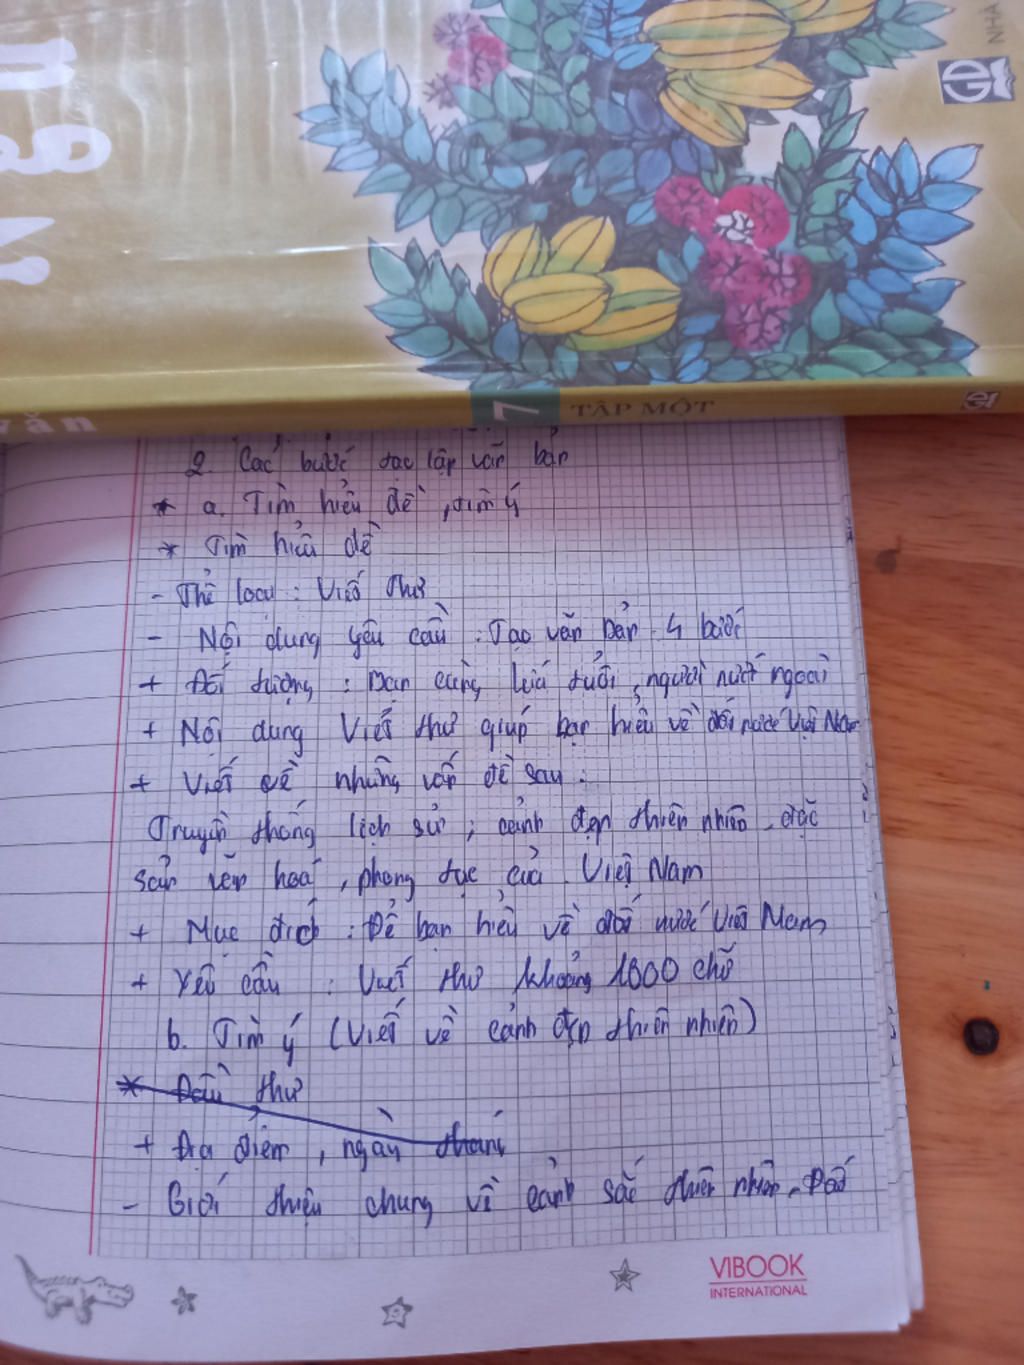 NHÀ
văn
7
TẬP MỘT
2. Các bước tạo lập văn bản
* a. Tìm hiểu đề, tìm ý
* Tìm hiểu đề
- Thể loại : Viết thư
- Nội dung yêu cầu : Tạo văn bản 4 bước
+ Đối tượng : Bạn cùng lứa tuổi, người nước ngoài
+ Nội dung Viết thư giúp bạn hiểu về đất nước Việt Nam
+ Viết về những vấn đề sau :
Truyền thống lịch sử ; cảnh đẹp thiên nhiên, đặc
sản văn hoá, phong tục của Việt Nam
+ Mục đích : Để bạn hiểu về đất nước Việt Nam
+ Yêu cầu : Viết thư khoảng 1000 chữ
b. Tìm ý (Viết về cảnh đẹp thiên nhiên)
* Đầu thư
+ Địa điểm, ngày tháng
- Giới thiệu chung về cảnh sắc thiên nhiên. Đất
VIBOOK
INTERNATIONAL